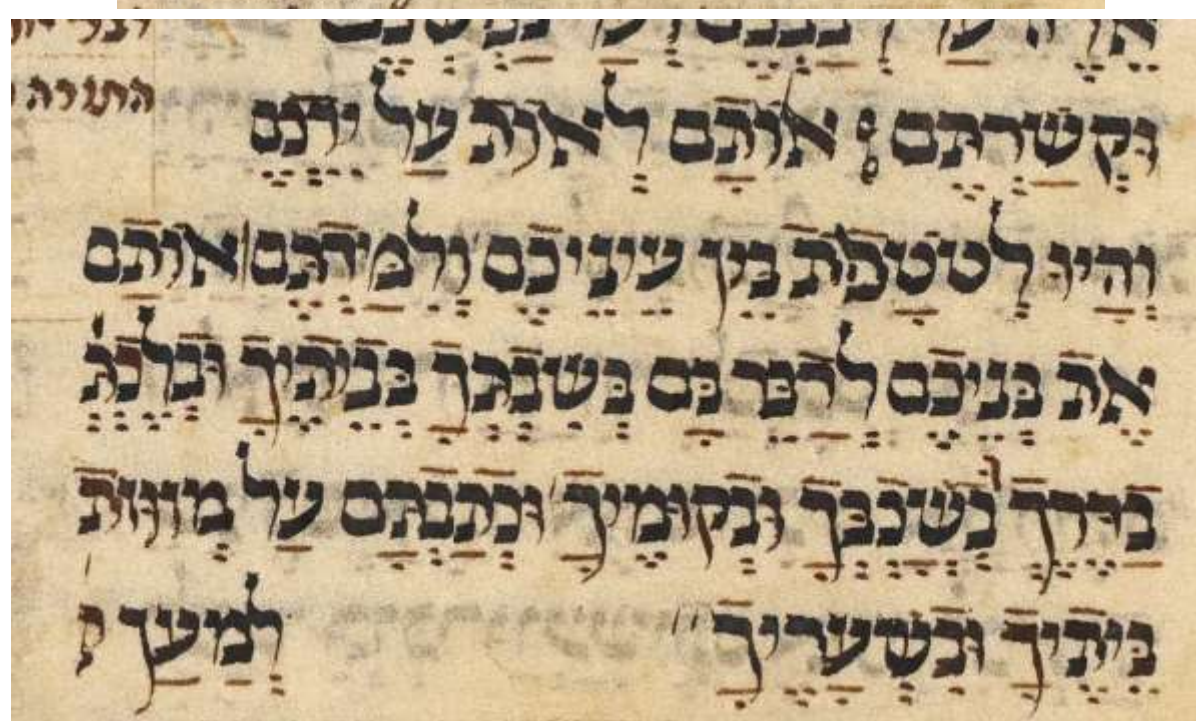 אֵלֶּה עַל לְבַבְכֶם וְעַל נַפְשְׁכֶם
וּקְשַׁרְתֶּם אוֹתָם לְאוֹת עַל יֶדְכֶם
וְהָיוּ לְטֹטָפֹת בֵּין עֵינֵיכֶם וְלִמַּדְתֶּם אוֹתָם
אֶת בְּנֵיכֶם לְדַבֵּר בָּם בְּשִׁבְתְּךָ בְּבֵיתֶיךָ וּבְלֶכְתְּ
בַדֶּרֶךְ וּבְשָׁכְבְּךָ וּבְקוּמֶיךָ וּכְתַבְתָּם עַל מְזוּזוֹת
בֵּיתֶיךָ וּבִשְׁעָרֶיךָ לְמַעַן
התורה